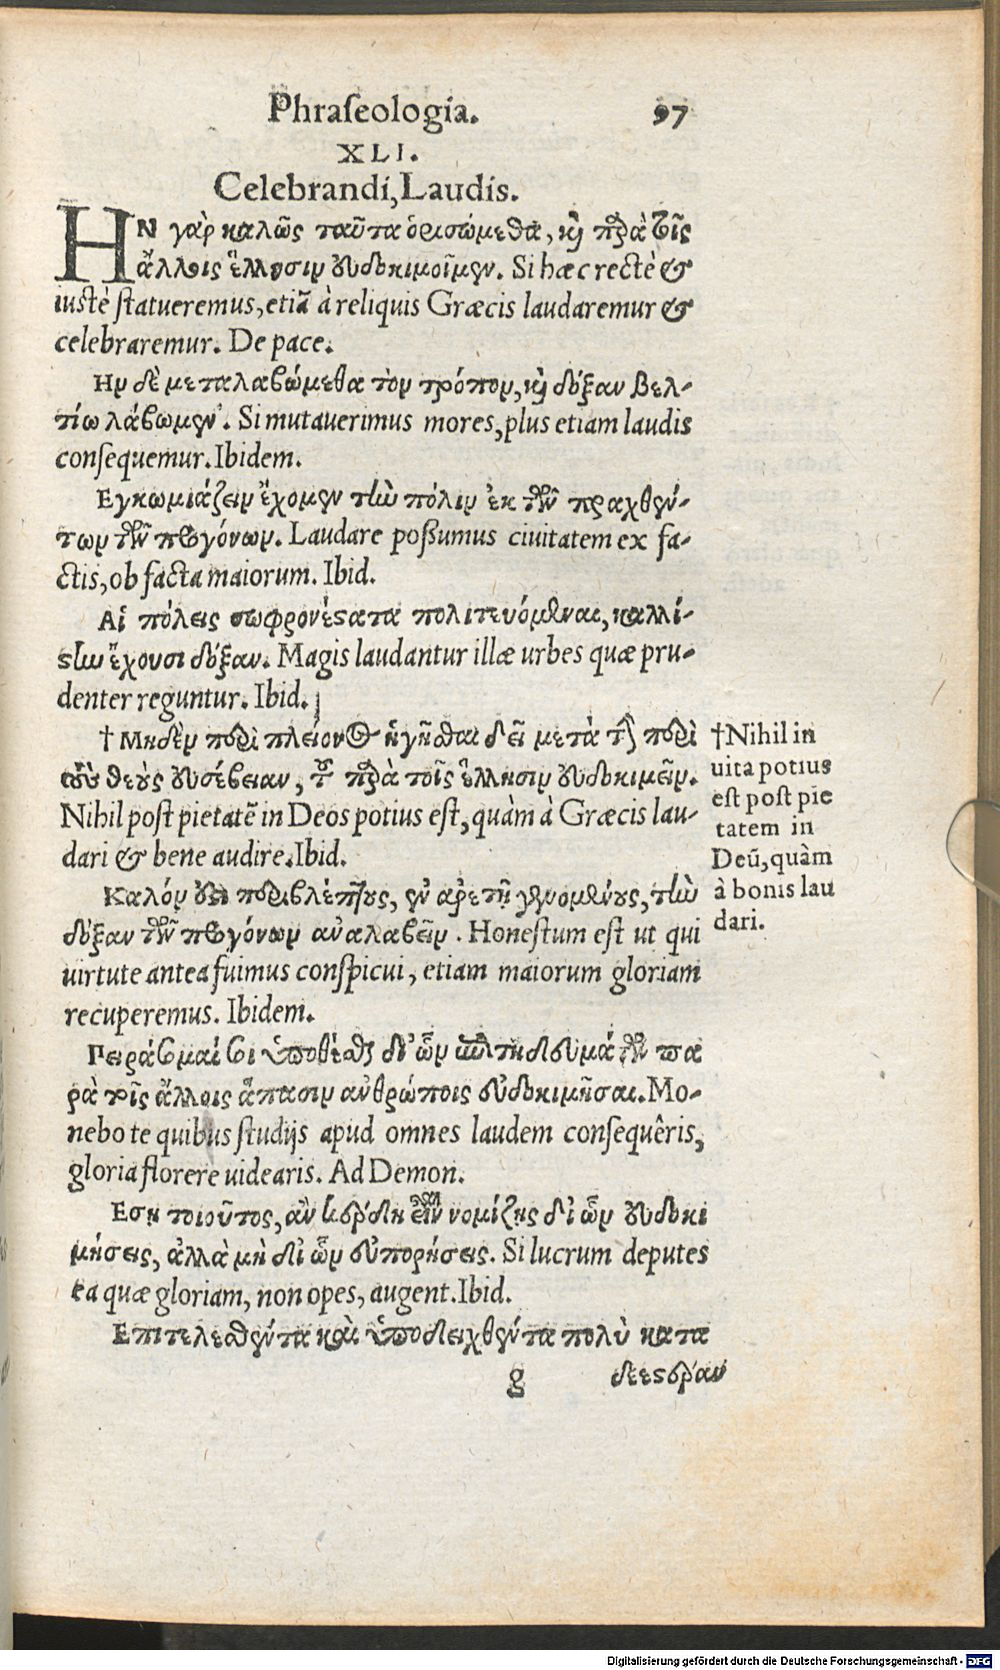 Phraſeologia. 97
XLI.
Celebrandi, Laudis.
ΗΝ γὰρ καλῶς ταῦτα ὁρισώμεθα, καὶ παρὰ τοῖς
ἄλλοις ἕλλησιν εὐδοκιμοῖμεν. Si hæc rectè &
iustè ſtatueremus, etiã à reliquis Græcis laudaremur &
celebraremur. De pace.
Ην δὲ μεταλαβώμεθα τὸν τρόπον, καὶ δόξαν βελ-
τίω λάβωμεν. Si mutauerimus mores, plus etiam laudis
conſequemur. Ibidem.
Εγκωμιάζειν ἔχομεν τὴν πόλιν ἐκ τῶν πραχθέν-
των τῶν προγόνων. Laudare poſſumus ciuitatem ex fa-
ctis, ob facta maiorum. Ibid.
Αἱ πόλεις σωφρονέστατα πολιτευόμεναι, καλλί-
στην ἔχουσι δόξαν. Magis laudantur illæ urbes quæ pru-
denter reguntur. Ibid.
† Μηδὲν περὶ πλείονος ἡγῆσθαι δεῖ μετὰ τὴν περὶ
τοὺς θεοὺς εὐσέβειαν, τοῦ παρὰ τοῖς ἕλλησιν εὐδοκιμεῖν.
Nihil poſt pietatẽ in Deos potius eſt, quàm à Græcis lau-
dari & bene audire. Ibid.
†Nihil in
uita potius
eſt poſt pie
tatem in
Deũ, quàm
à bonis lau
dari.
Καλόν περιβλέπτους, ἐν ἀρετῇ γενομένους, τὴν
δόξαν τῶν προγόνων ἀναλαβεῖν. Honeſtum eſt ut qui
uirtute antea fuimus conſpicui, etiam maiorum gloriam
recuperemus. Ibidem.
Πειράσομαί σοι ὑποθέσθαι δι' ὧν ἐπιτηδευμάτων πα
ρὰ τοῖς ἄλλοις ἅπασιν ἀνθρώποις εὐδοκιμῆσαι. Mo-
nebo te quibus ſtudijs apud omnes laudem conſequêris,
gloria florere uidearis. Ad Demon.
Εση τοιοῦτος, ἂν κέρδη εἶναι νομίζης δι' ὧν εὐδοκι
μήσεις, ἀλλὰ μὴ δι' ὧν εὐπορήσεις. Si lucrum deputes
ea quæ gloriam, non opes, augent. Ibid.
Επιτελεσθέντα καὶ ὑποδειχθέντα πολὺ κατα
g δεεστέραν
Digitalisierung gefördert durch die Deutsche Forschungsgemeinschaft - DFG